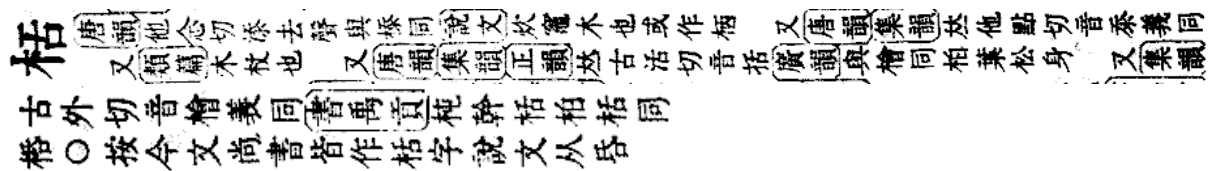 栝
唐韻他念切添去聲與㮇同說文炊竈木也或作 又唐韻集韻𠀤他點切音忝義同
又類篇木杖也 又唐韻集韻正韻𠀤古活切音括廣韻與檜同柏葉松身 又集韻
古外切音檜義同書禹貢杶幹栝柏栝同
桰○按今文尚書皆作栝字說文从昏